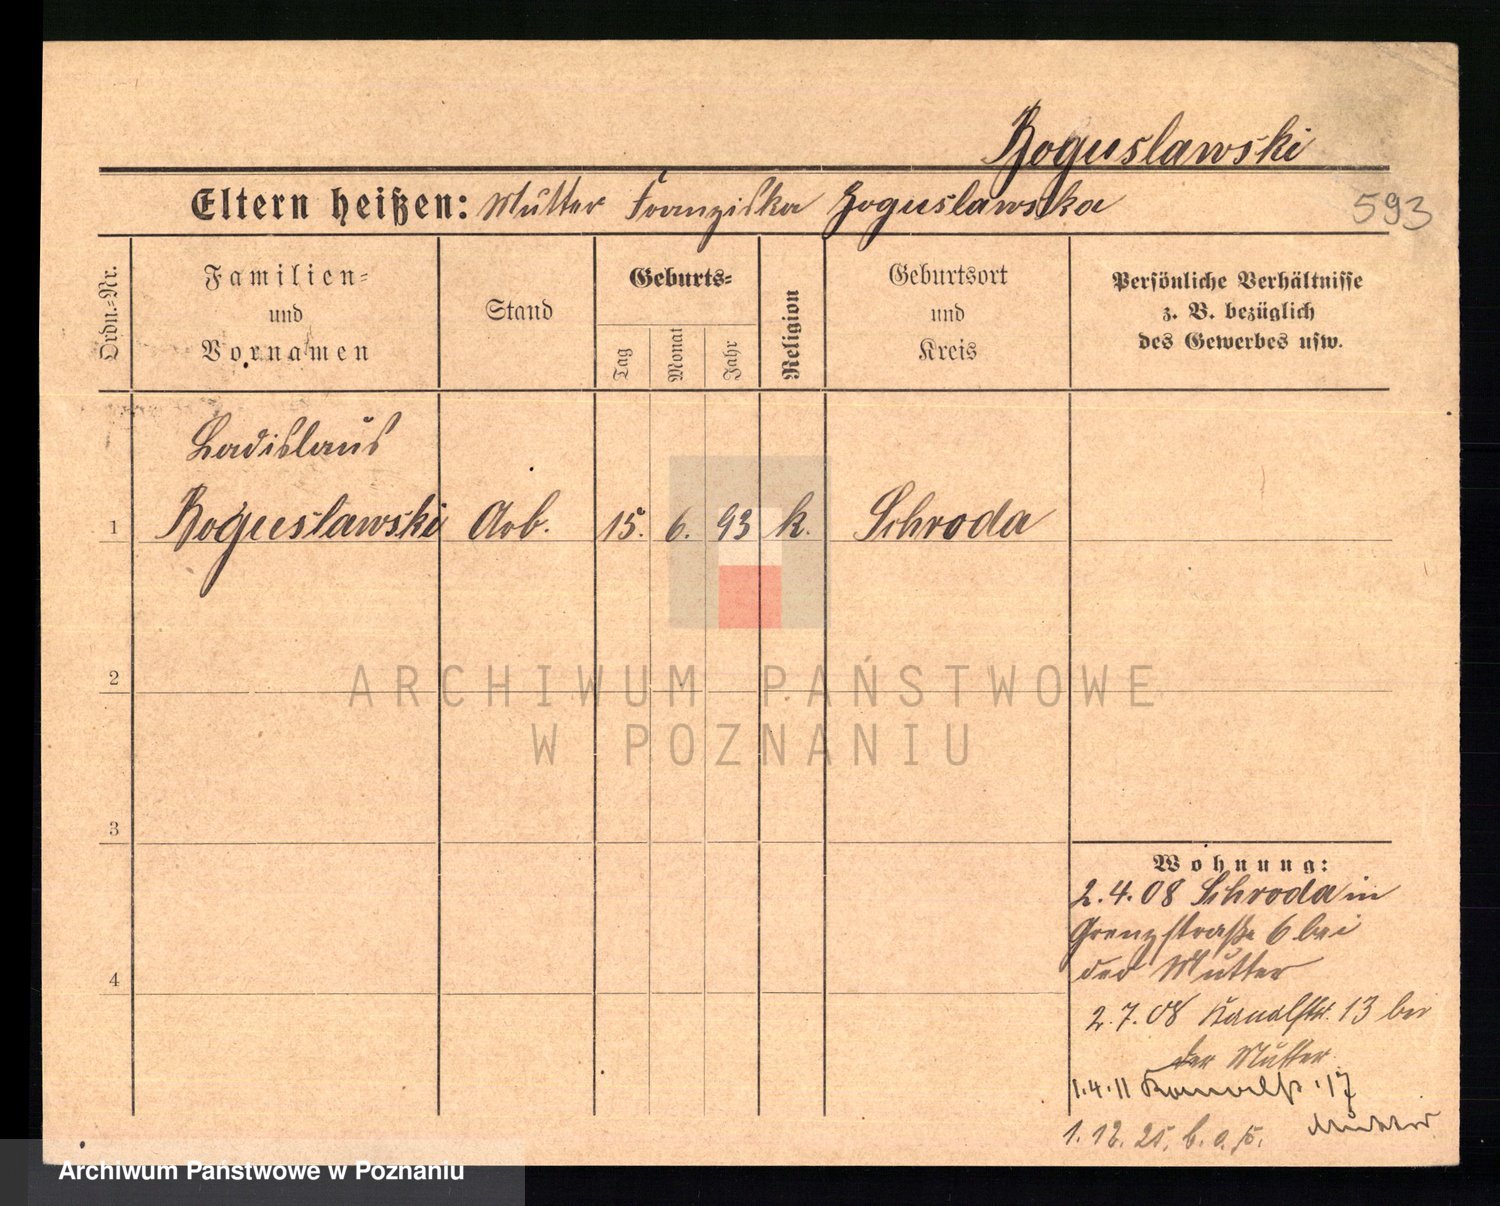 Boguslawski
Eltern heißen: Mutter Franziska Boguslawska
593
Ordn.=Nr.
Familien=
und
Vornamen
Stand
Geburts=
Tag
Monat
Jahr
Religion
Geburtsort
und
Kreis
Persönliche Verhältnisse
z. B. bezüglich
des Gewerbes usw.
Ladislaus
1 Boguslawski Arb. 15. 6. 93 k. Schroda
2
ARCHIWUM PAŃSTWOWE
W POZNANIU
3
Wohnung:
2.4.08 Schroda in
Grenzstraße 6 bei
der Mutter
4
2.7.08 Kanalstr. 13 bei
der Mutter
1.4.11 Kanalstr. 17
Mutter
1.12.25.
Archiwum Państwowe w Poznaniu